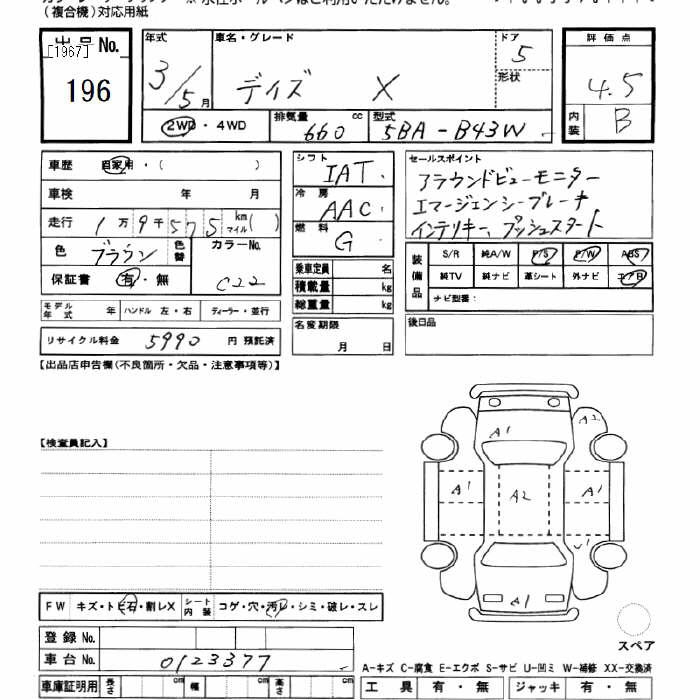 (複合機)対応用紙
出品 No.
[1967]
196
年式 車名・グレード ドア
3/5月 デイズ X 5
形状
2WD・4WD 排気量 cc 型式
660 5BA-B43W
評価点
4.5
内装 B
車歴 自家用・( )
車検 年 月
走行 1万9千575 km マイル ( )
色 ブラウン 色替 カラーNo.
保証書 有・無 C22
モデル年式 年 ハンドル 左・右 ディーラー・並行
リサイクル料金 5990 円 預託済
シフト IAT
冷房 AAC
燃料 G
乗車定員 名
積載量 kg
総重量 kg
名変期限
月 日
セールスポイント
アラウンドビューモニター
エマージェンシーブレーキ
インテリキー、プッシュスタート
装備品 S/R 純A/W P/S P/W ABS
純TV 純ナビ 革シート 外ナビ エアB
ナビ型番:
後日品
【出品店申告欄(不良箇所・欠品・注意事項等)】
【検査員記入】
A1 A2
A1 A2 A1
U1
A1
スペア
FW キズ・トビ石・割レX シート内装 コゲ・穴・汚レ・シミ・破レ・スレ
登録 No.
車台 No. 0123377
車庫証明用 長さ cm 幅 cm 高さ cm
A-キズ C-腐食 E-エクボ S-サビ U-凹ミ W-補修 XX-交換済
工具 有・無 ジャッキ 有・無